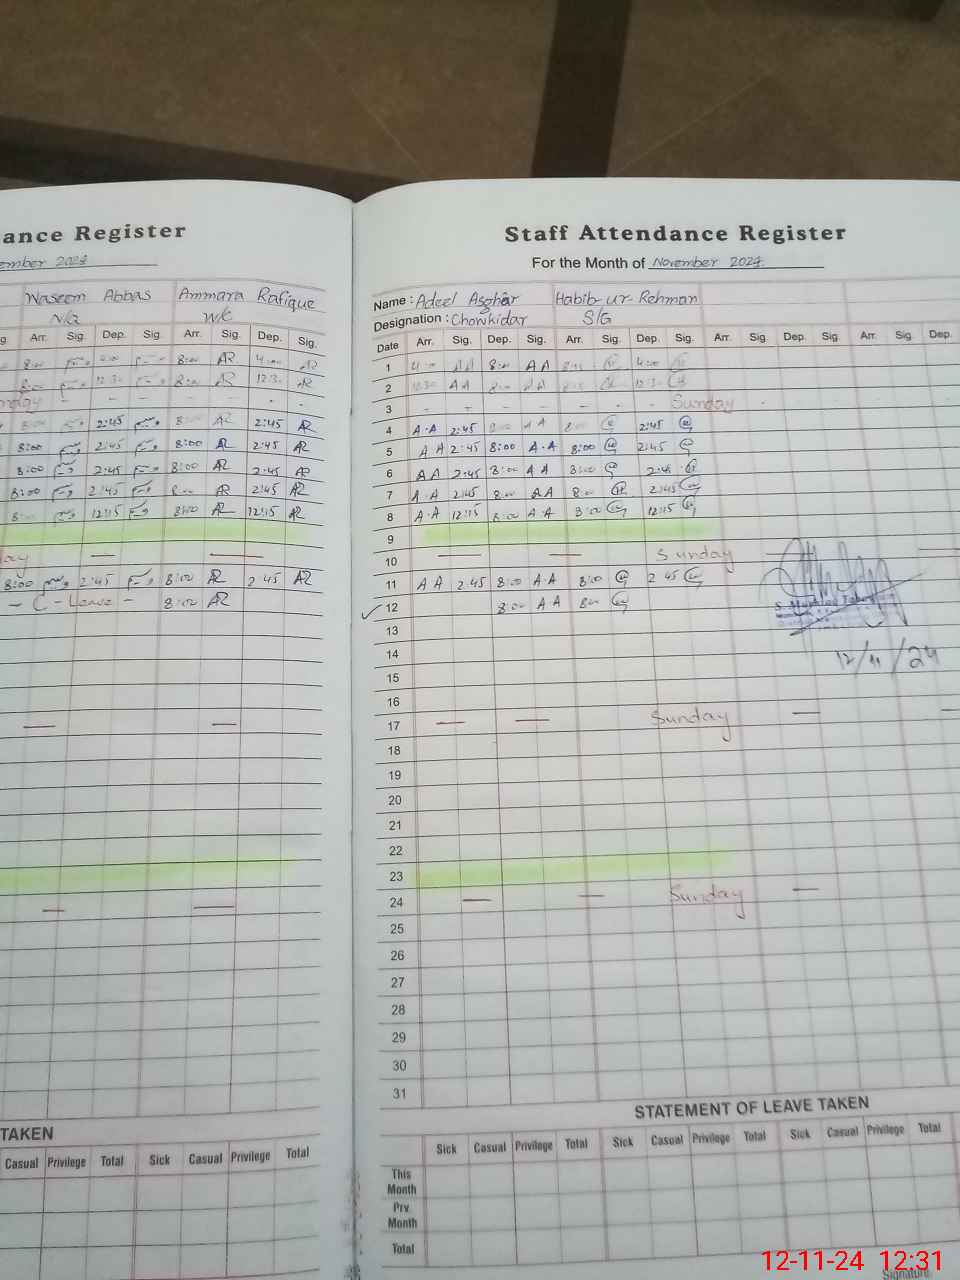 ance Register
ember 2024
Waseem Abbas Ammara Rafique
N/Q W/C
g Arr. Sig. Dep. Sig. Arr. Sig. Dep. Sig.
8:00 4:00 8:00 AR 4:00 AR
8:00 12:30 8:00 AR 12:30 AR
nday - - - - - -
8:00 2:45 8:00 AR 2:45 AR
8:00 2:45 8:00 AR 2:45 AR
8:00 2:45 8:00 AR 2:45 AR
8:00 2:45 8:00 AR 2:45 AR
8:00 12:15 8:00 AR 12:15 AR
day
8:00 2:45 8:00 AR 2 45 AR
- C-Leave - 8:00 AR
TAKEN
Casual Privilege Total Sick Casual Privilege Total
Staff Attendance Register
For the Month of November 2024
Name : Adeel Asghar Habib-ur-Rehman
Designation : Chowkidar S/G
Date Arr. Sig. Dep. Sig. Arr. Sig. Dep. Sig. Arr. Sig. Dep. Sig. Arr. Sig. Dep.
1 4:00 AA 8:00 AA 8:00 4:00
2 12:30 AA 8:00 AA 8:00 12:30
3 - - - - - - - Sunday
4 A·A 2:45 8:00 AA 8:00 2:45
5 AA 2:45 8:00 A·A 8:00 2:45
6 AA 2:45 8:00 AA 8:00 2:45
7 A·A 2:45 8:00 AA 8:00 2:45
8 A·A 12:15 8:00 A·A 8:00 12:15
9
10 Sunday
11 AA 2.45 8:00 A·A 8:00 2 45
12 8:00 AA 8:00
13
14
12/11/24
15
16
17 Sunday
18
19
20
21
22
23
24 Sunday
25
26
27
28
29
30
31
STATEMENT OF LEAVE TAKEN
Sick Casual Privilege Total Sick Casual Privilege Total Sick Casual Privilege Total
This Month
Prv. Month
Total
Signature
12-11-24 12:31